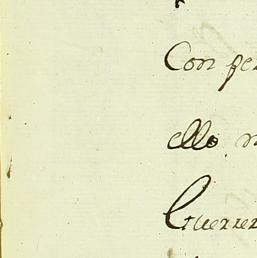 Con pe
ello n
Guerre